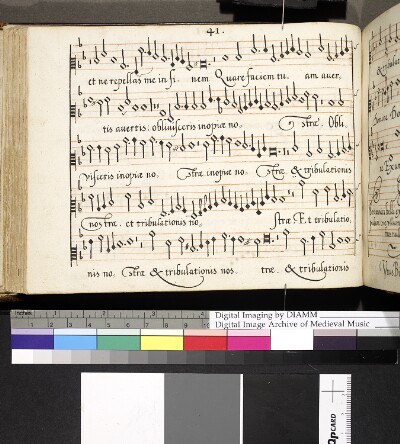 41.
et ne repellas me in fi. nem Quare faciem tu. am aver.
tis avertis. oblivisceris inopiæ no. stræ. Obli.
visceris inopiæ no. stræ inopiæ no. stræ & tribulationis
nostræ. et tribulationis no, stræ Et tribulatio,
nis no, stræ & tribulationis nos. træ. & tribulationis
Digital Imaging by DIAMM
Digital Image Archive of Medieval Music
inches 1 2 3 4
1 2 3 4 5 6 7 8 9
QPCARD